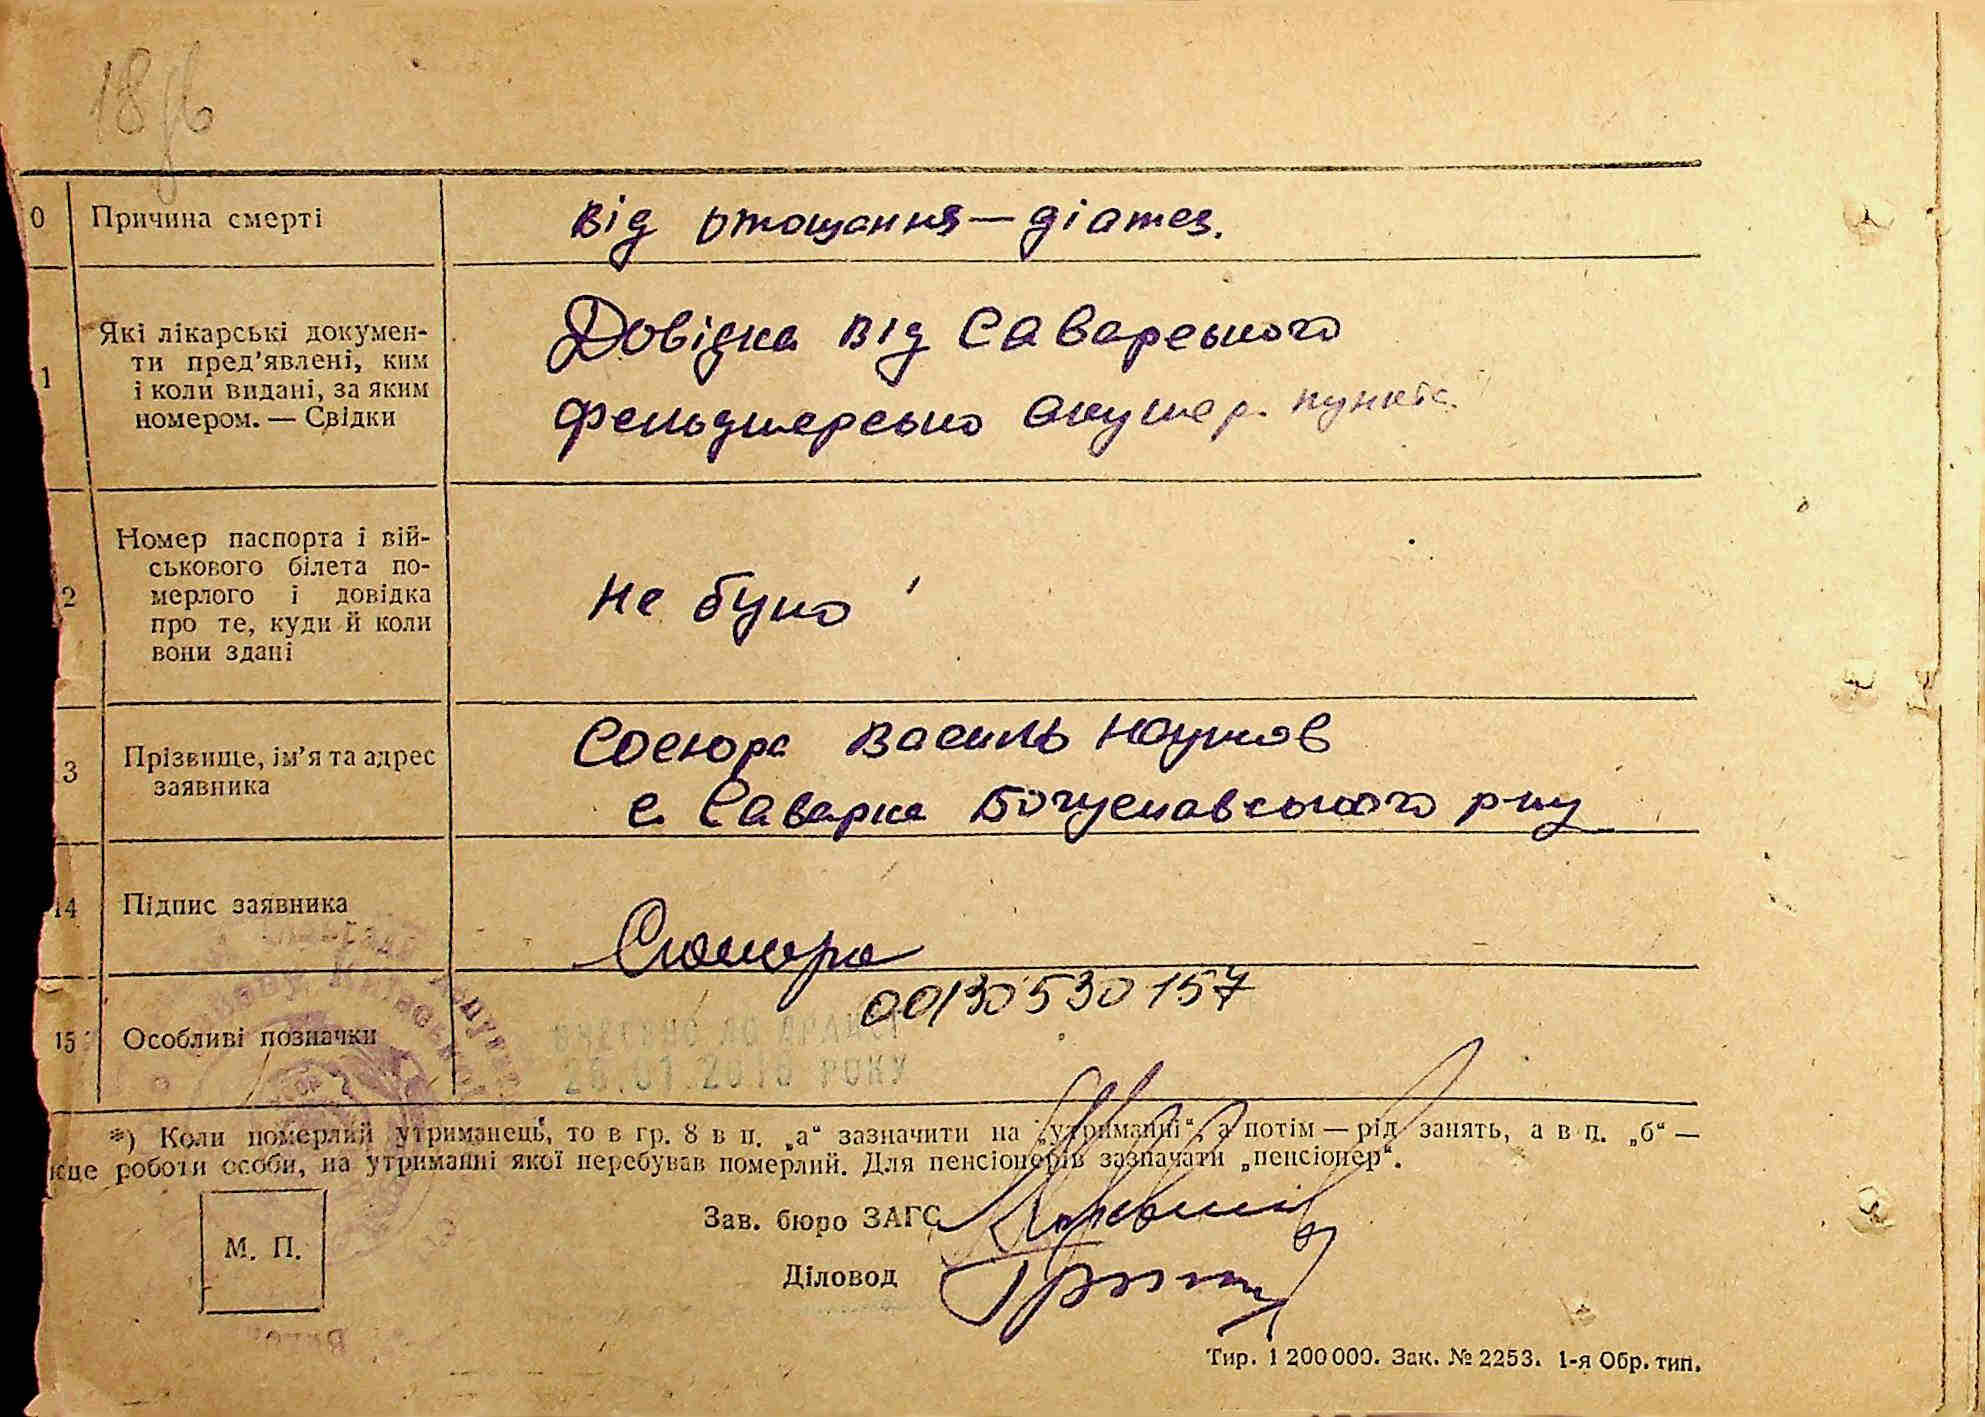 0 Причина смерті
від отощання — діатез.
1 Які лікарські докумен-
ти пред’явлені, ким
і коли видані, за яким
номером. — Свідки
Довідка від Саварського
фельдшерсько акушер. пункта
2 Номер паспорта і вій-
ськового білета по-
мерлого і довідка
про те, куди й коли
вони здані
не було
3 Прізвище, ім’я та адрес
заявника
Сосюра Василь Наумов
с. Саварка Богуславського р-ну
14 Підпис заявника
15 Особливі позначки
00130530157
ВНЕСЕНО ДО
РОКУ
*) Коли померлий утриманець, то в гр. 8 в п. „а“ зазначити на „утриманні“, а потім — рід занять, а в п. „б“ —
роботи особи, на утриманні якої перебував померлий. Для пенсіонерів зазначати „пенсіонер“.
Зав. бюро ЗАГС
М. П.
Діловод
Тир. 1 200 000. Зак. № 2253. 1-я Обр. тип.